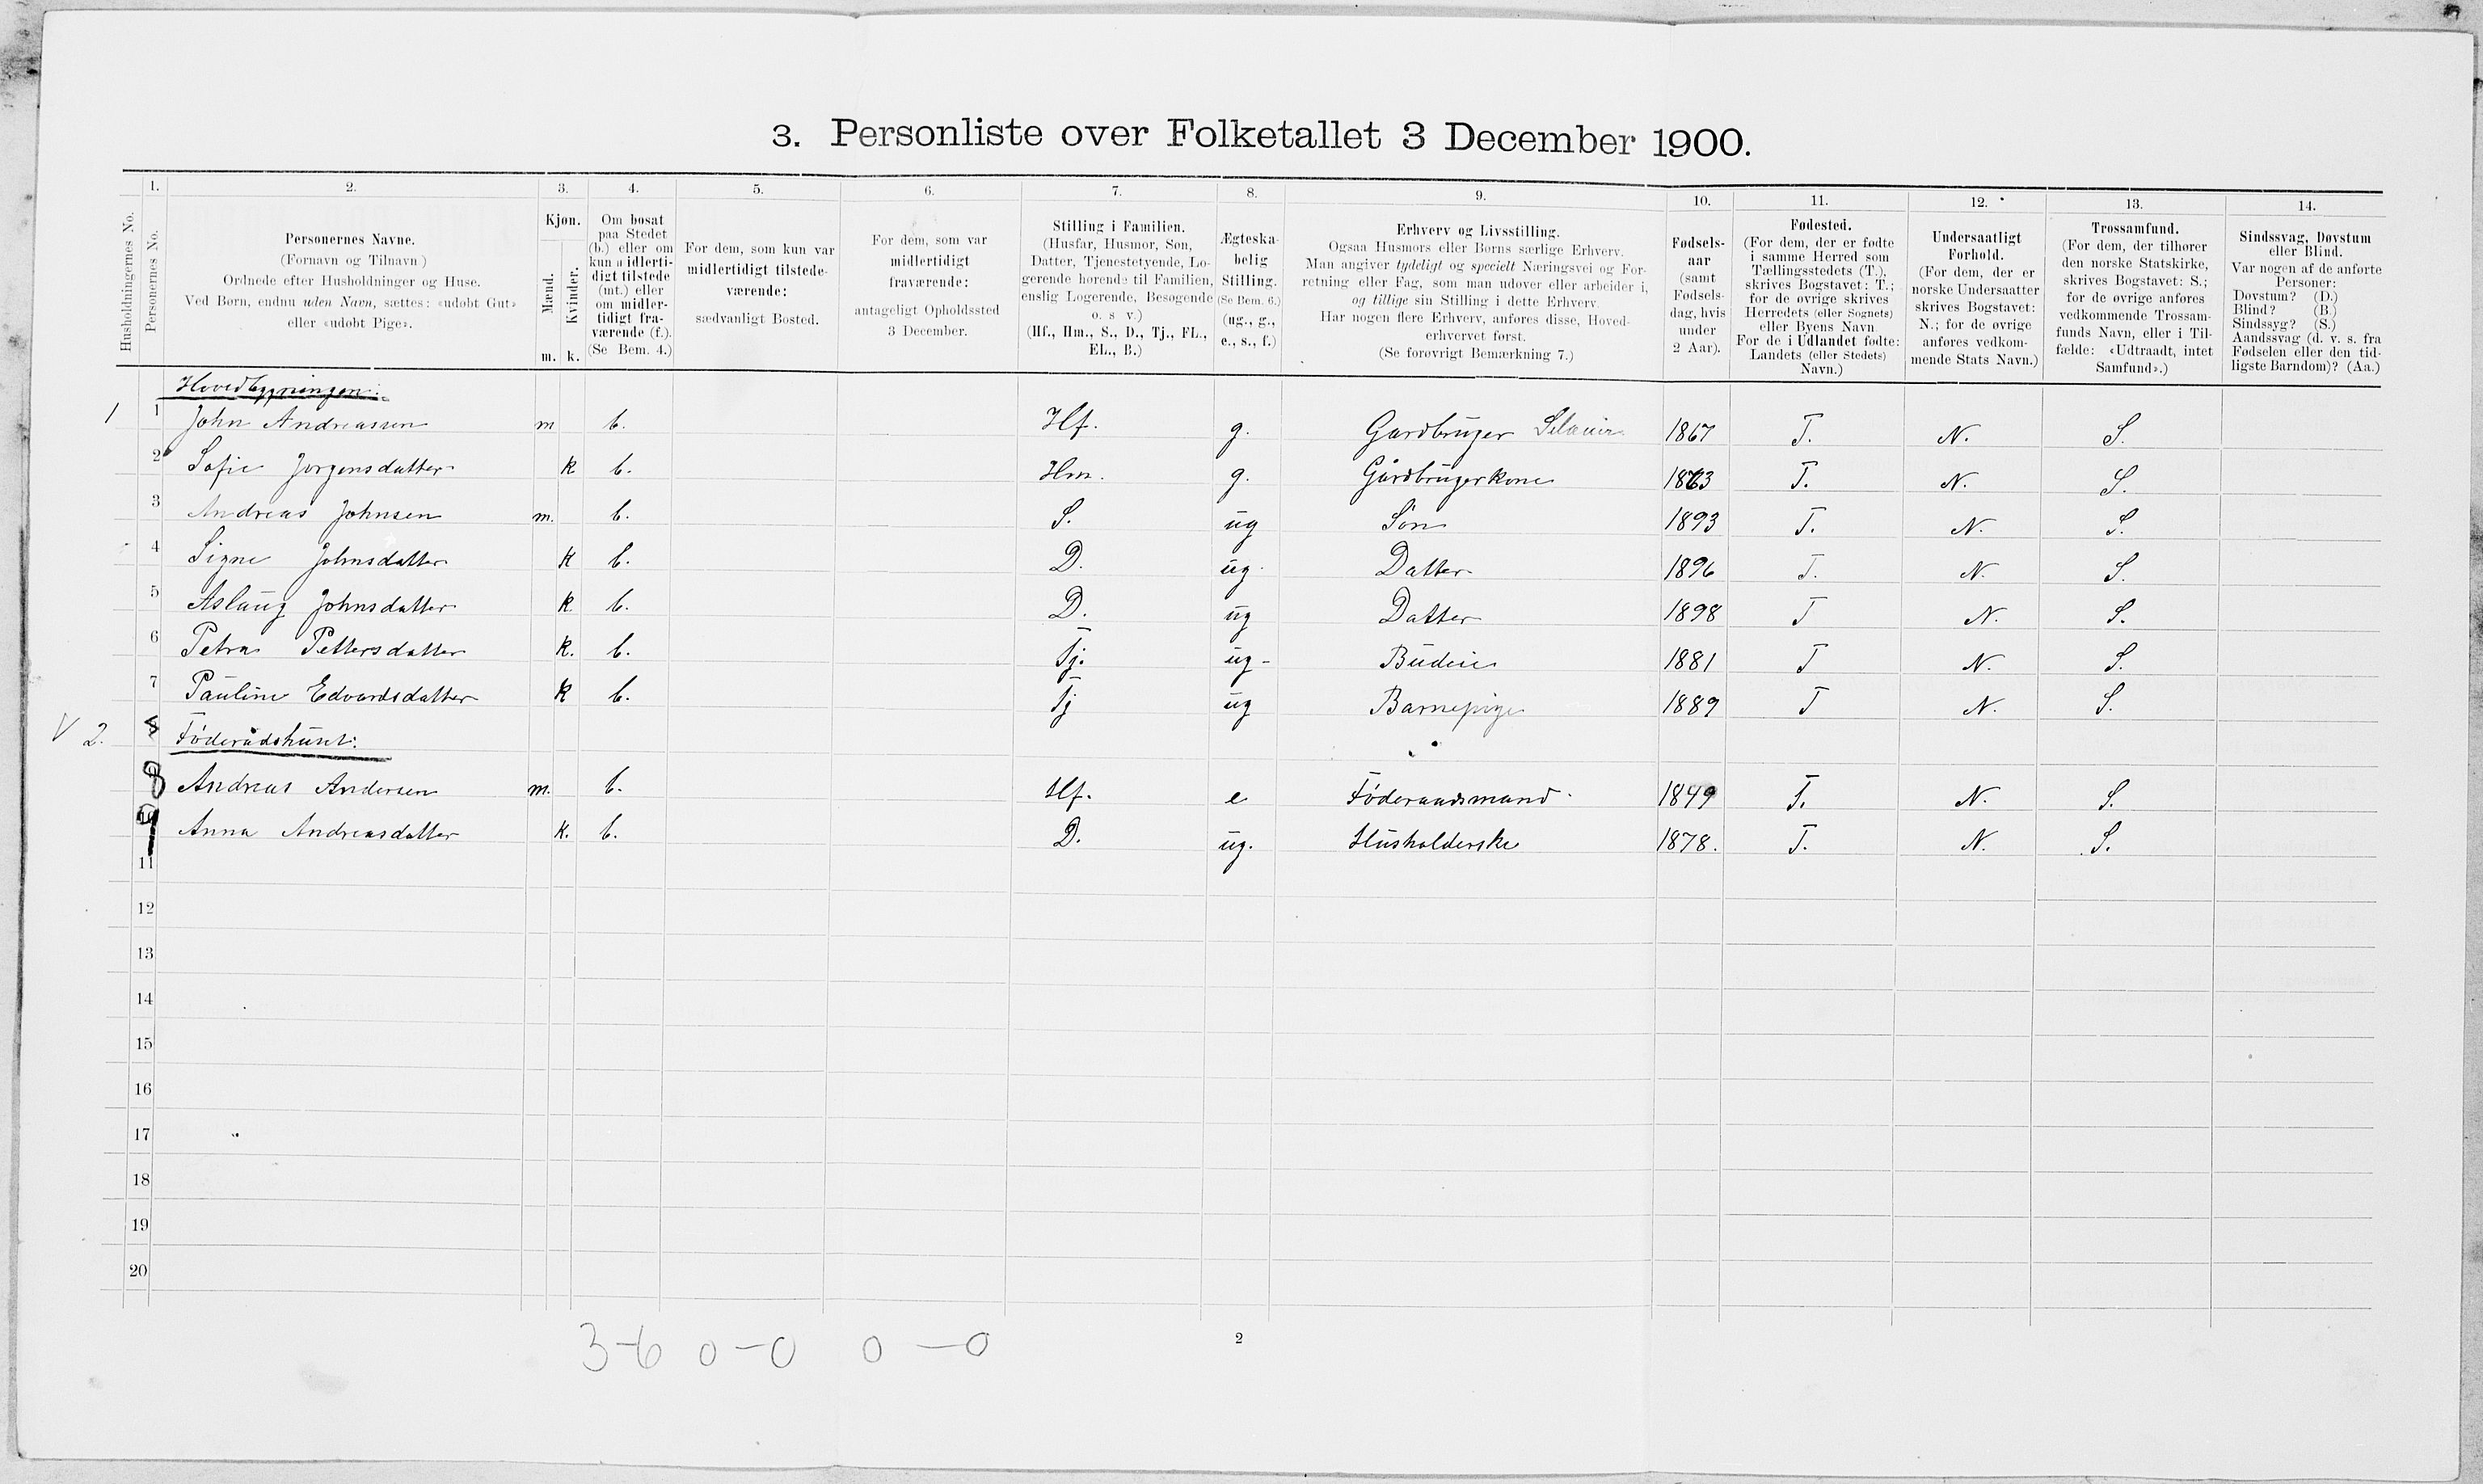 3. Personliste over Folketallet 3 December 1900.
1. 2. 3. 4. 5. 6. 7. 8. 9. 10. 11. 12. 13. 14.
Husholdningernes No.
Personernes No.
Personernes Navne.
(Fornavn og Tilnavn)
Ordnede efter Husholdninger og Huse.
Ved Børn, endnu uden Navn, sættes: «udøbt Gut»
eller «udøbt Pige».
Kjøn.
Mænd.
Kvinder.
m. k.
Om bosat
paa Stedet
(b.) eller om
kun midlerti-
digt tilstede
(mt.) eller
om midler-
tidigt fra-
værende (f.).
(Se Bem. 4.)
For dem, som kun var
midlertidigt tilstede-
værende:
sædvanligt Bosted.
For dem, som var
midlertidigt
fraværende:
antageligt Opholdssted
3 December.
Stilling i Familien.
(Husfar, Husmor, Søn,
Datter, Tjenestetyende, Lo-
gerende hørende til Familien,
enslig Logerende, Besøgende
o. s. v.)
(Hf., Hm., S., D., Tj., FL.,
EL., B.)
Ægteska-
belig
Stilling.
(Se Bem. 6.)
(ug., g.,
e., s., f.)
Erhverv og Livsstilling.
Ogsaa Husmors eller Børns særlige Erhverv.
Man angiver tydeligt og specielt Næringsvei og For-
retning eller Fag, som man udøver eller arbeider i,
og tillige sin Stilling i dette Erhverv.
Har nogen flere Erhverv, anføres disse, Hoved-
erhvervet først.
(Se forøvrigt Bemærkning 7.)
Fødsels-
aar
(samt
Fødsels-
dag, hvis
under
2 Aar).
Fødested.
(For dem, der er fødte
i samme Herred som
Tællingsstedets (T.),
skrives Bogstavet: T.;
for de øvrige skrives
Herredets (eller Sognets)
eller Byens Navn.
For de i Udlandet fødte:
Landets (eller Stedets)
Navn.)
Undersaatligt
Forhold.
(For dem, der er
norske Undersaatter
skrives Bogstavet:
N.; for de øvrige
anføres vedkom-
mende Stats Navn.)
Trossamfund.
(For dem, der tilhører
den norske Statskirke,
skrives Bogstavet: S.;
for de øvrige anføres
vedkommende Trossam-
funds Navn, eller i Til-
fælde: «Udtraadt, intet
Samfund».)
Sindssvag, Døvstum
eller Blind.
Var nogen af de anførte
Personer:
Døvstum? (D.)
Blind? (B.)
Sindssyg? (S.)
Aandssvag (d. v. s. fra
Fødselen eller den tid-
ligste Barndom)? (Aa.)
Hovedbygningen:
1 1 John Andreassen m b. Hf. g. Gardbruger 1867 T. N. S.
2 Sofie Jørgensdatter k b. Hm. g. Gårdbrugerkone 1863 T. N. S.
3 Andreas Johnsen m. b. S. ug Søn 1893 T. N. S.
4 Signe Johnsdatter k b. D. ug. Datter 1896 T. N. S.
5 Aslaug Johnsdatter k b. D. ug Datter 1898 T N. S.
6 Petra Pettersdatter k. b. Tj. ug - Budeie 1881 T N. S.
7 Pauline Edvardsdatter k b. Tj ug Barnepige 1889 T N. S.
V 2. 8 Føderådshuset:
8 Andreas Andersen m. b. Hf. e Føderaadsmand 1849 T. N. S.
9 Anna Andreasdatter k. b. D. ug. Husholderske 1878. T. N. S.
11
12
13
14
15
16
17
18
19
20
3-6 0-0 0-0
2